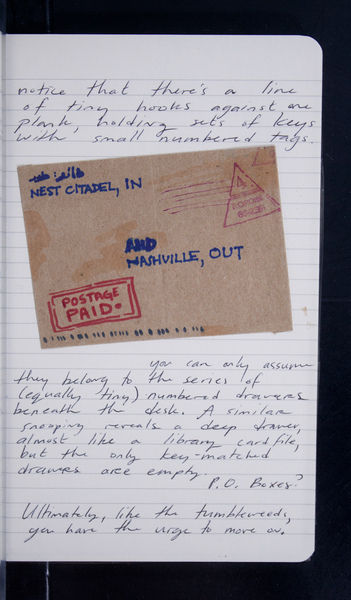 notice that there's a line
of tiny hooks against one
plank, holding sets of keys
with small numbered tags.
NEST CITADEL, IN
4
AND
NASHVILLE, OUT
POSTAGE
PAID.
you can only assume
they belong to the series of
(equally tiny) numbered drawers
beneath the desk. A similar
snooping reveals a deep drawer,
almost like a library card file,
but the only key-matched
drawers are empty.
P.O. Boxes?
Ultimately, like the tumbleweeds,
you have the urge to move on.